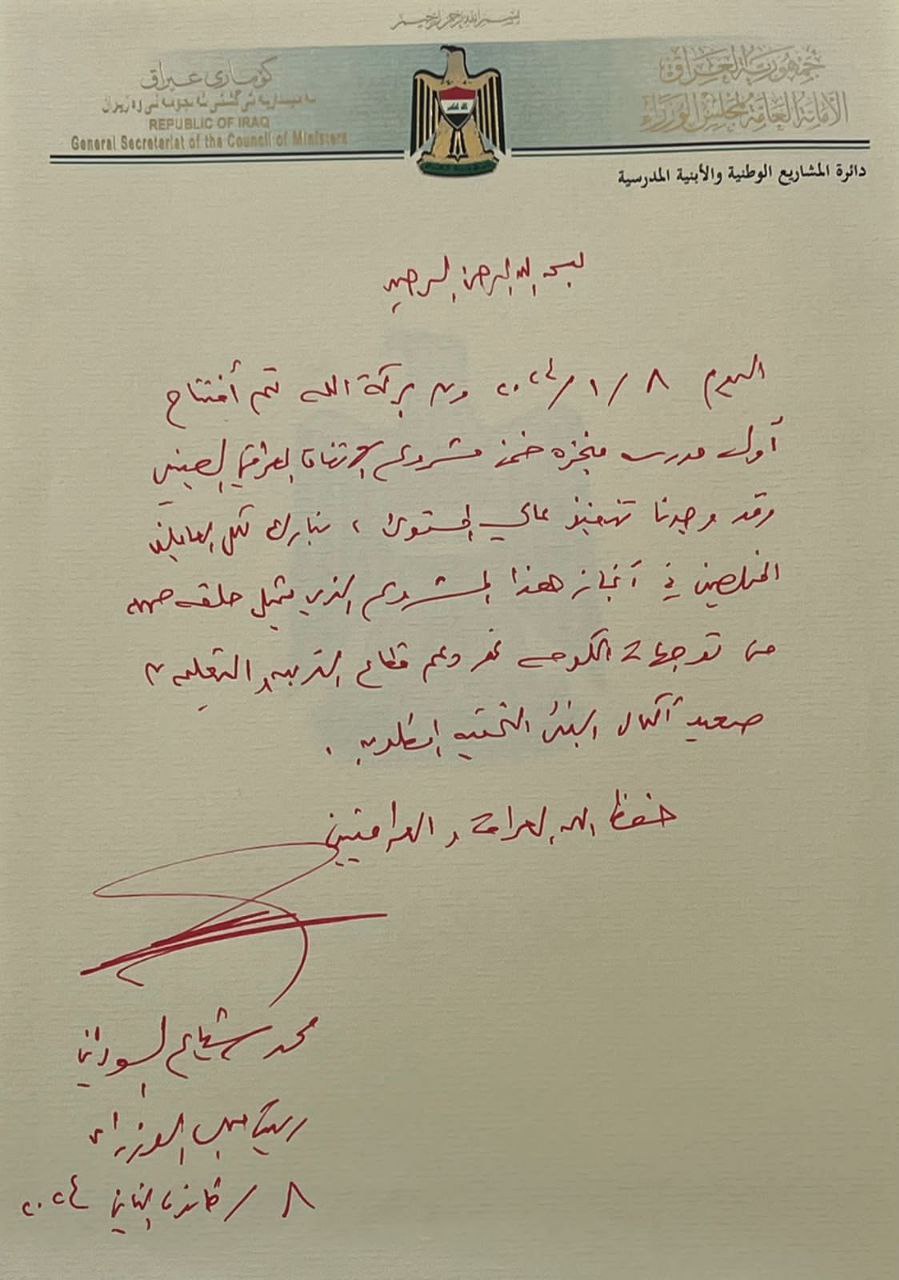 بسم الله الرحمن الرحيم
جمهورية العراق
الأمانة العامة لمجلس الوزراء
كۆماری عێراق
REPUBLIC OF IRAQ
General Secretariat of the Council of Ministers
دائرة المشاريع الوطنية والأبنية المدرسية
بسم الله الرحمن الرحيم
اليوم ٨ / ١ / ٢٠٢٤ ومن بركة الله تم أفتتاح
أول مدرسه منجزه ضمن مشروع الاتفاق العراقي الصيني
وقد وجدنا تنفيذ عالي المستوى ، نبارك لكل العاملين
المخلصين في أنجاز هذا المشروع الذي يمثل حلقه مهمه
من توجهات الحكومه نحو دعم قطاع التربيه والتعليم
صعيد أكمال البنى التحتيه المطلوبه .
حفظ الله العراق والعراقيين
محمد شياع السوداني
رئيس مجلس الوزراء
٨ / كانون الثاني ٢٠٢٤